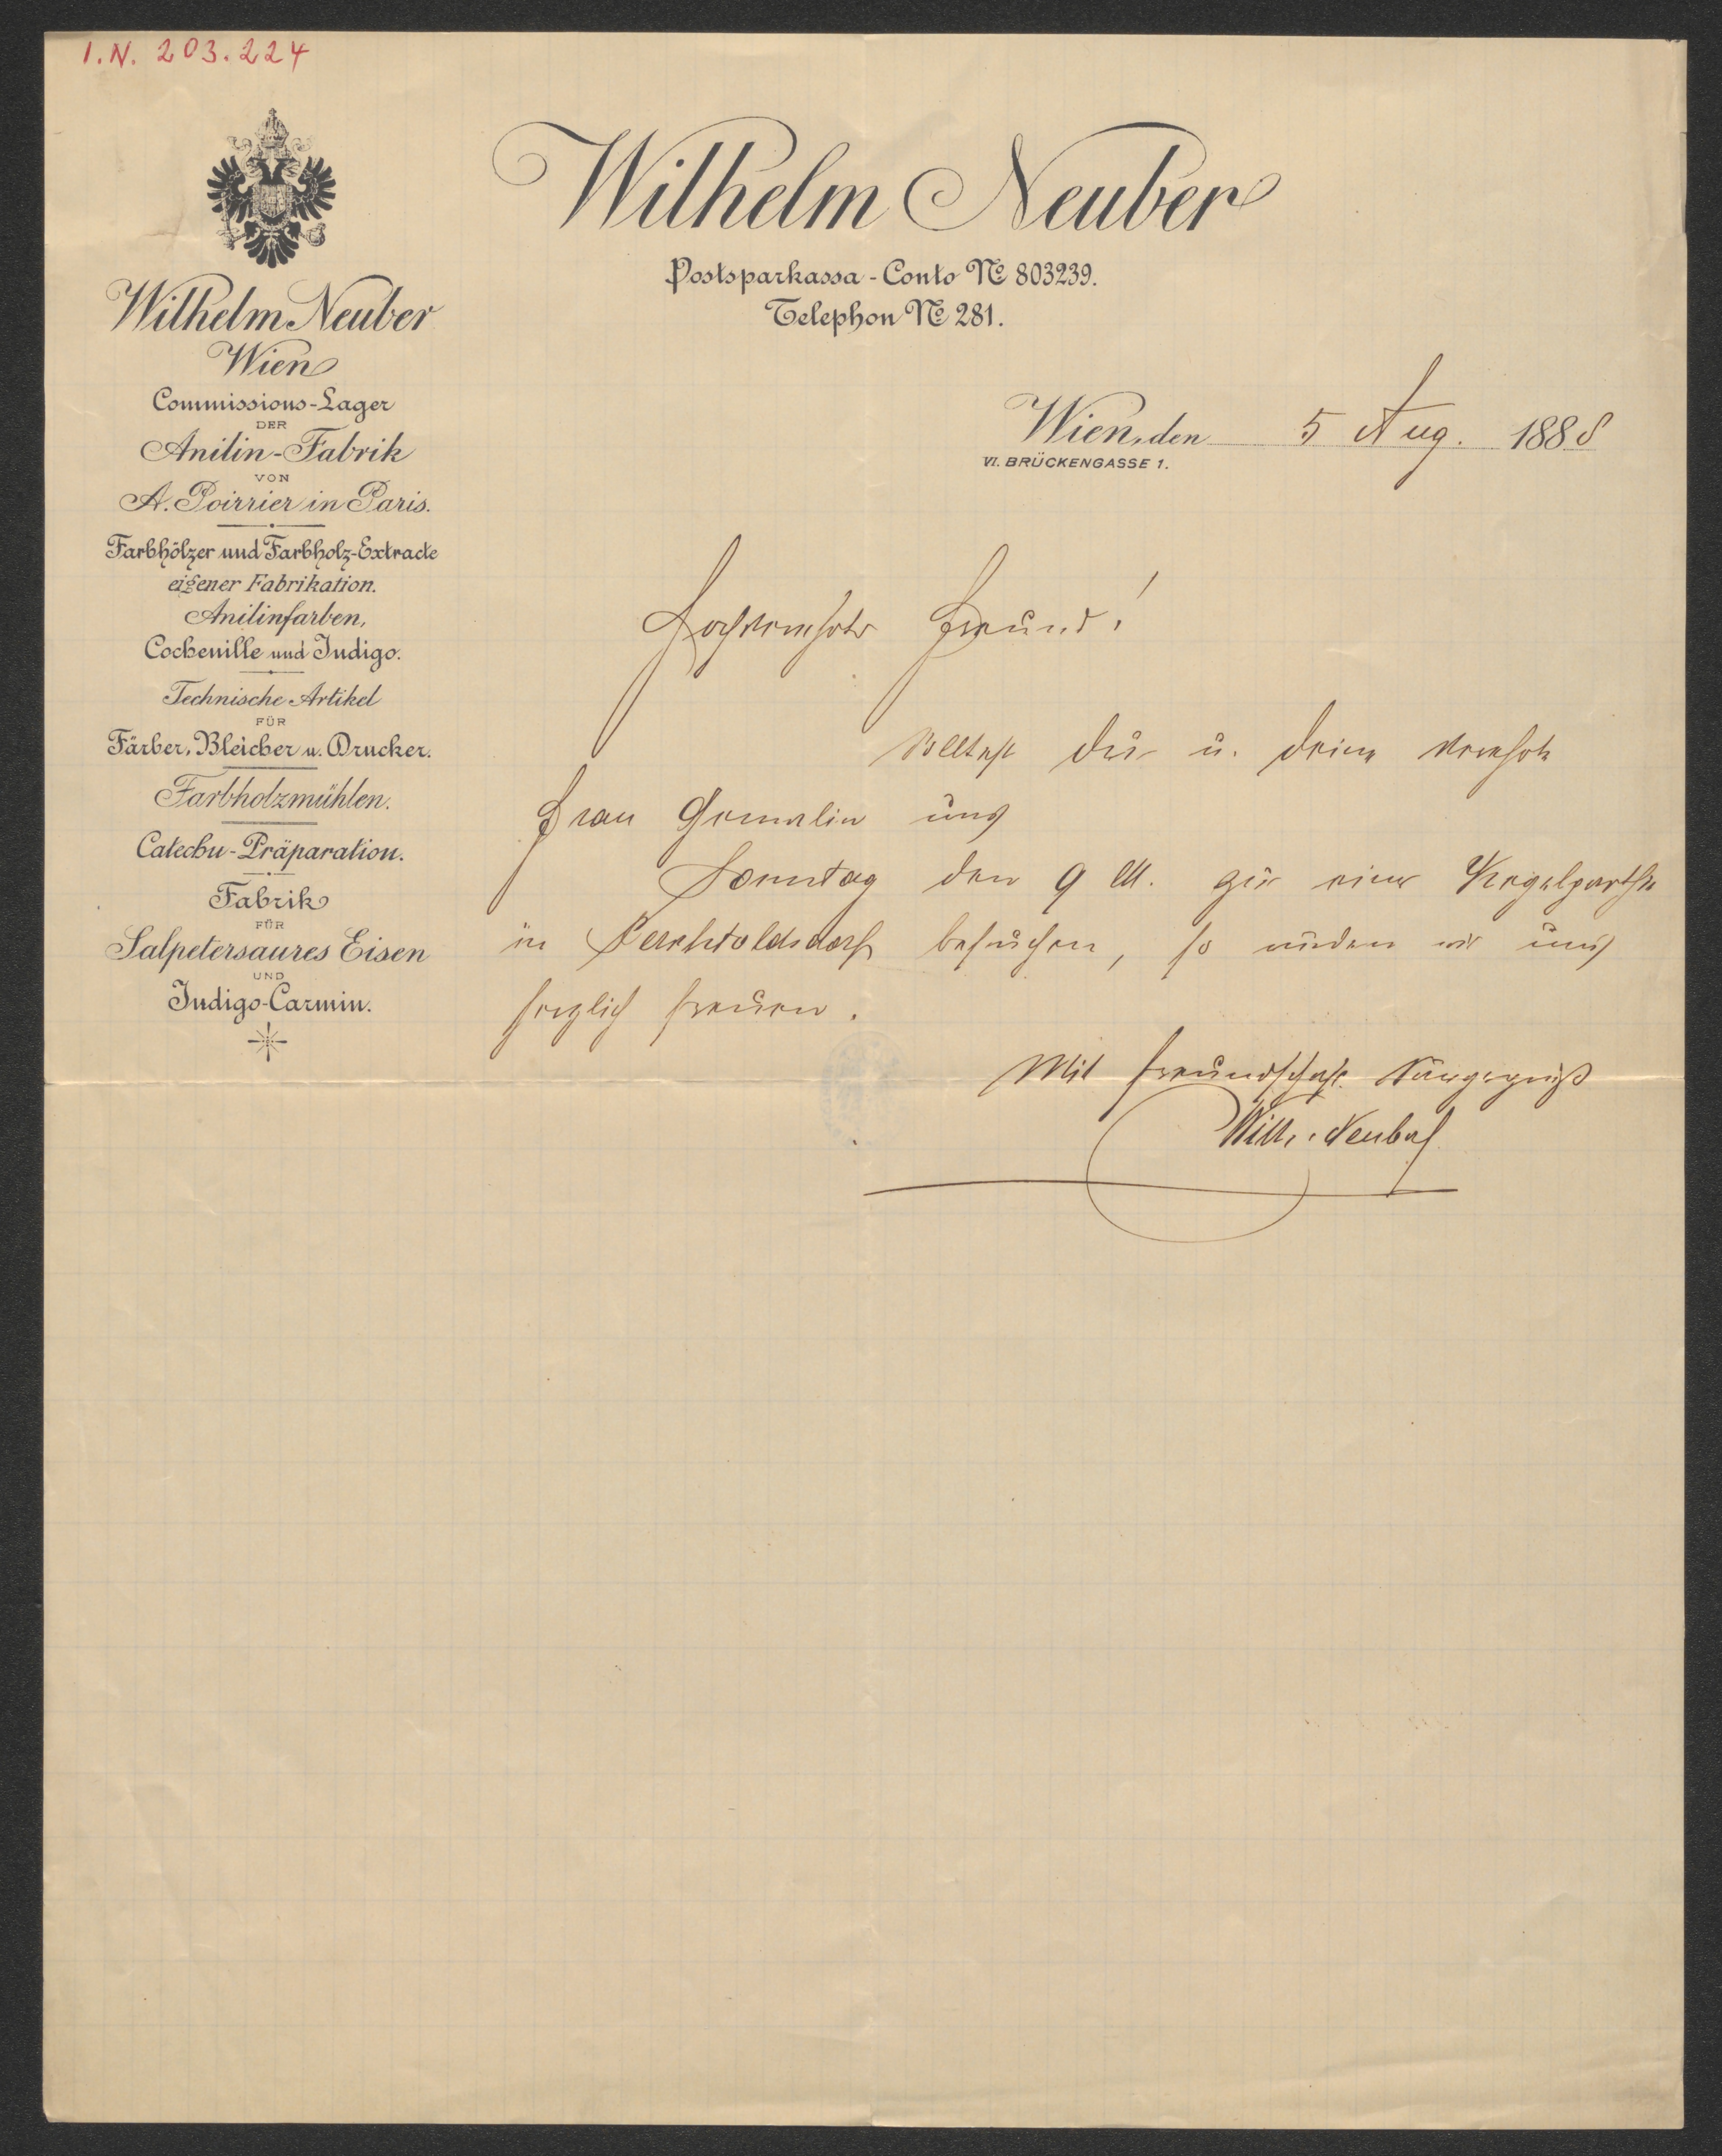 I.N. 203.224
Wilhelm Neuber
Postsparkassa-Conto No 803239.
Telephon No 281.
Wilhelm Neuber
Wien
Commissions-Lager
DER
Anilin-Fabrik
VON
A. Poirrier in Paris.
Farbhölzer und Farbholz-Extracte
eigener Fabrikation.
Anilinfarben,
Cochenille und Indigo.
Technische Artikel
FÜR
Färber, Bleicher u. Drucker.
Farbholzmühlen.
Catechu-Präparation.
Fabrik
FÜR
Salpetersaures Eisen
UND
Indigo-Carmin.
Wien, den 5 Aug. 1888
VI. BRÜCKENGASSE 1.
Hochverehrter Freund!
Wolltest Du u. Deine verehrte
Frau Gemalin uns
Sonntag den 9 M. zu einer Kegelparthie
in Perchtoldsdorf besuchen, so würden wir uns
herzlich freuen.
Mit freundschaftl. Sängergruß
Wilh. Neuber